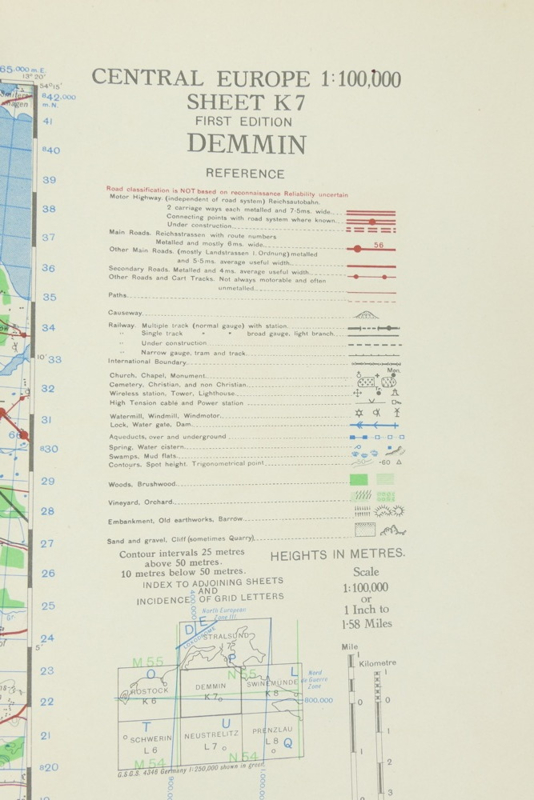 CENTRAL EUROPE 1:100,000
SHEET K7
FIRST EDITION
DEMMIN
REFERENCE
Road classification is NOT based on reconnaissance Reliability uncertain
Motor Highway (independent of road system) Reichsautobahn.
2 carriage ways each metalled and 7·5ms. wide
Connecting points with road system where known
Under construction
Main Roads. Reichsstrassen with route numbers
Metalled and mostly 6ms. wide 56
Other Main Roads. (mostly Landstrassen I. Ordnung) metalled
and 5-5ms. average useful width
Secondary Roads. Metalled and 4ms. average useful width
Other Roads and Cart Tracks. Not always motorable and often
unmetalled
Paths
Causeway
Railway. Multiple track (normal gauge) with station
" Single track " " broad gauge, light branch
" Under construction
" Narrow gauge, tram and track
International Boundary
Church, Chapel, Monument Mon.
Cemetery, Christian, and non Christian
Wireless station, Tower, Lighthouse
High Tension cable and Power station
Watermill, Windmill, Windmotor
Lock, Water gate, Dam
Aqueducts, over and underground
Spring, Water cistern
Swamps, Mud flats
Contours, Spot height, Trigonometrical point -60
Woods, Brushwood
Vineyard, Orchard
Embenkment, Old earthworks, Barrow
Sand and gravel, Cliff (sometimes Quarry)
Contour intervals 25 metres
above 50 metres.
10 metres below 50 metres.
HEIGHTS IN METRES.
INDEX TO ADJOINING SHEETS
AND
INCIDENCE OF GRID LETTERS
Scale
1:100,000
or
1 Inch to
1·58 Miles
North European
Zone III
D E
STRALSUND
M 55
P
N 55
O
ROSTOCK
K 6
DEMMIN
K 7
L
SWINEMÜNDE
K 8
Nord
de Guerre
Zone
800,000
T
SCHWERIN
L 6
U
NEUSTRELITZ
L 7
PRENZLAU
L 8 Q
M 54
N 54
G.S.G.S. 4346 Germany 1:250,000 shown in green
Mile
Kilometre
1
0
1
2
3
1
0
65,000 m.E.
13° 20'
54° 15'
842,000
m.N.
41
840
39
38
37
36
35
34
10' 33
32
31
830
29
28
27
26
25
24
5'
23
22
21
820